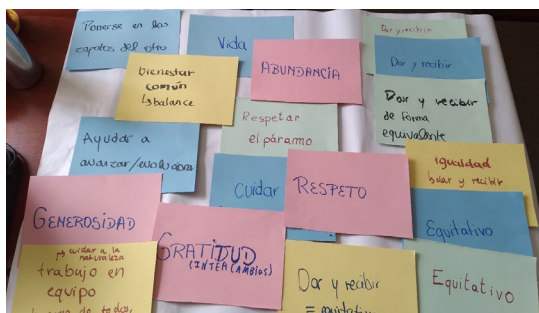 Ponerse en los
zapatos del otro
Vida
ABUNDANCIA
Dar y recibir
Dar y recibir
bienestar
común
↳ balance
Dar y recibir
de forma
equivalente
Respetar
el páramo
Ayudar a
avanzar/evolucionar
igualdad
↳ dar y recibir
Cuidar
RESPETO
GENEROSIDAD
GRATITUD
(INTERCAMBIOS)
Equitativo
↳ cuidar a la
naturaleza
trabajo en
equipo
de todos,
Dar y recibir
= equitativo
Equitativo